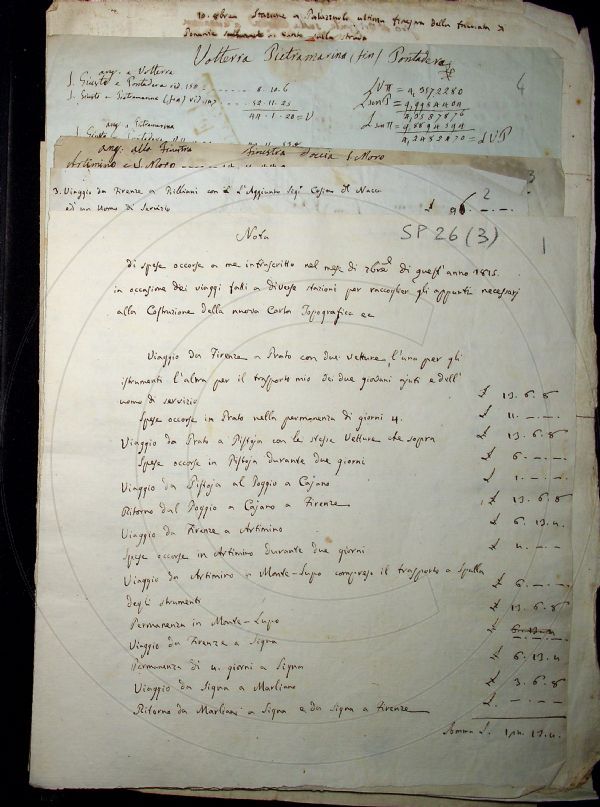 10. obre Stazione a Palazzuolo ultima finestra della facciata
Ponente
Volterra Pietramarina (fin) Pontadera
4
ang. a Volterra
S. Giusto e Pontadera vid 150 8. 10. 6
S. Giusto e Pietramarina (fin) vid 147 52. 11. 25
44. 1. 20 = V
ang. a Pietramarina
ang. alla finestra finestra Doccia S. Moro
Artimino e S. Moro
3
3. Viaggio da Firenze a con L'Aggiunto Sigr Cosimo Del Nacca
ed un Uomo di Servizio £
2
SP 26 (3)
1
Nota
di spese occorse a me infrascritto nel mese di di quest'anno 1815.
in occasione dei viaggi fatti a diverse stazioni per raccoglier gli appunti necessarj
alla Costruzione della nuova Carta Topografica ec
Viaggio da Firenze a Prato con due Vetture, l'una per gli
istrumenti l'altra per il trasporto mio dei due giovani ajuti e dell'
uomo di servizio £ 13. 6. 8
Spese occorse in Prato nella permanenza di giorni 4. £ 11. -. -
Viaggio da Prato a Pistoja con le stesse Vetture che sopra £ 13. 6. 8
Spese occorse in Pistoja durante due giorni £ 6. -. -
Viaggio da Pistoja al Poggio a Cajano £ 1. -. -
Ritorno dal Poggio a Cajano a Firenze £ 13. 6. 8
Viaggio da Firenze a Artimino £ 6. 13. 4.
Spese occorse in Artimino durante due giorni £ 4. -. -
Viaggio da Artimino a Monte-Lupo compreso il trasporto a Spalla
degli strumenti £ 6. -. -
Permanenza in Monte-Lupo £ 13. 6. 8
Viaggio da Firenze a Signa £
Permanenza di 4. giorni a Signa £ 6. 13. 4
Viaggio da Signa a Marliano £ 3. 6. 8
Ritorno da Marliano a Signa e da Signa a Firenze £. -. -. -
Somma £. 13. 4.